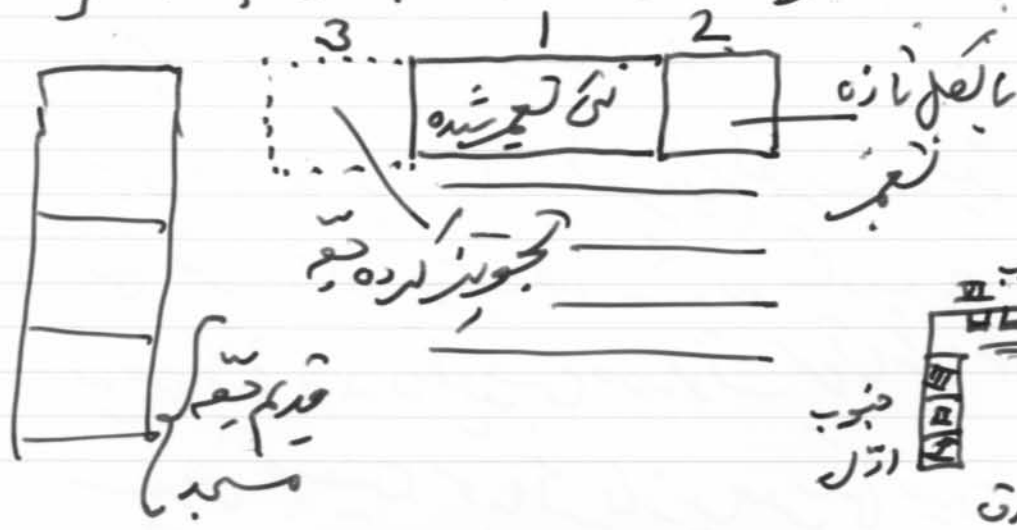 3 1 2
نئی تعمیر شدہ
بالکل تازہ
تعمیر
تجویز کردہ حصّہ
قدیم حصّہ
مسجد
VI
III
II
I
جنوب
اوّل